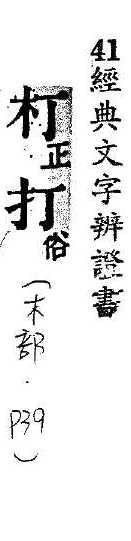 41經典文字辨證書
朾正打俗
(木部.P39)